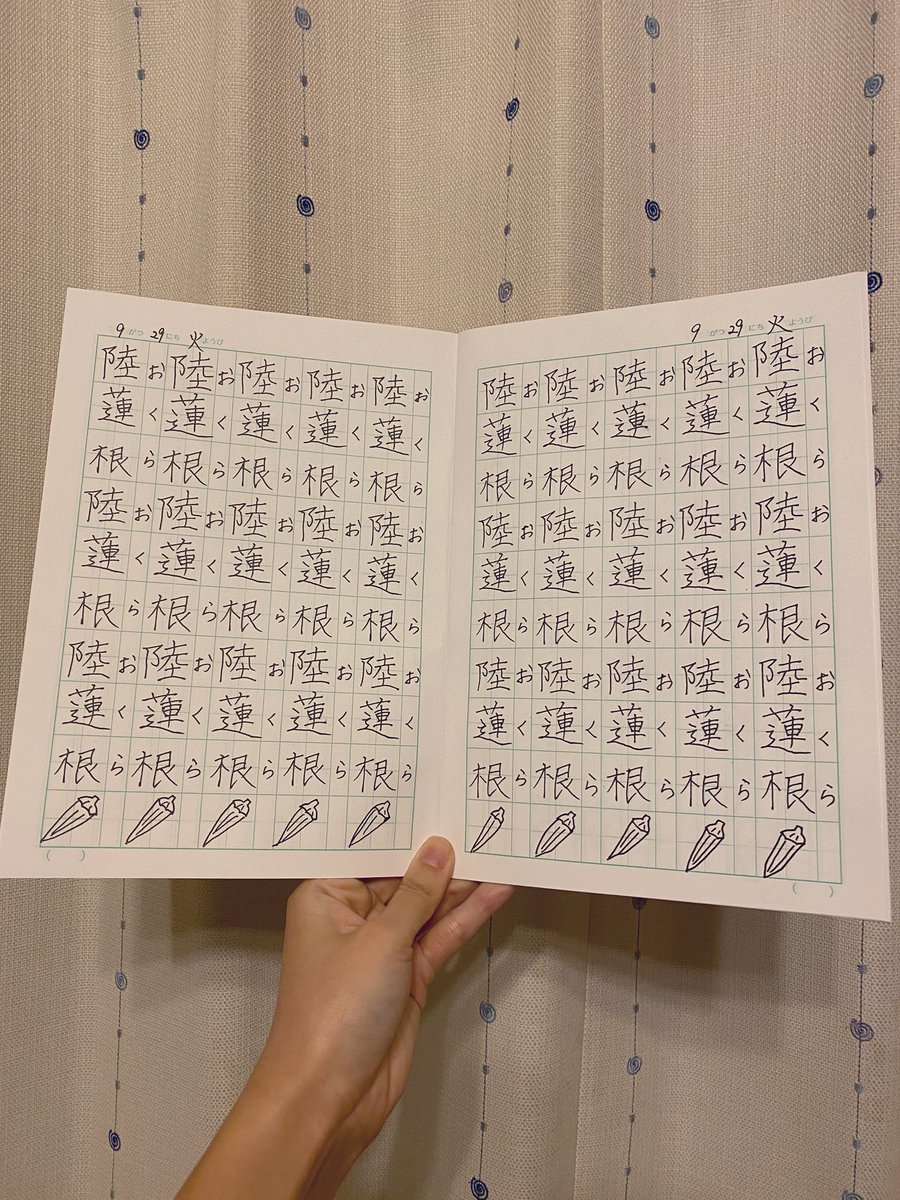 9がつ29にち火ようび
陸蓮根陸蓮根陸蓮根
おくらおくらおくら
陸蓮根陸蓮根陸蓮根
おくらおくらおくら
陸蓮根陸蓮根陸蓮根
おくらおくらおくら
陸蓮根陸蓮根陸蓮根
おくらおくらおくら
陸蓮根陸蓮根陸蓮根
おくらおくらおくら
( )
9がつ29にち火ようび
陸蓮根陸蓮根陸蓮根
おくらおくらおくら
陸蓮根陸蓮根陸蓮根
おくらおくらおくら
陸蓮根陸蓮根陸蓮根
おくらおくらおくら
陸蓮根陸蓮根陸蓮根
おくらおくらおくら
陸蓮根陸蓮根陸蓮根
おくらおくらおくら
( )